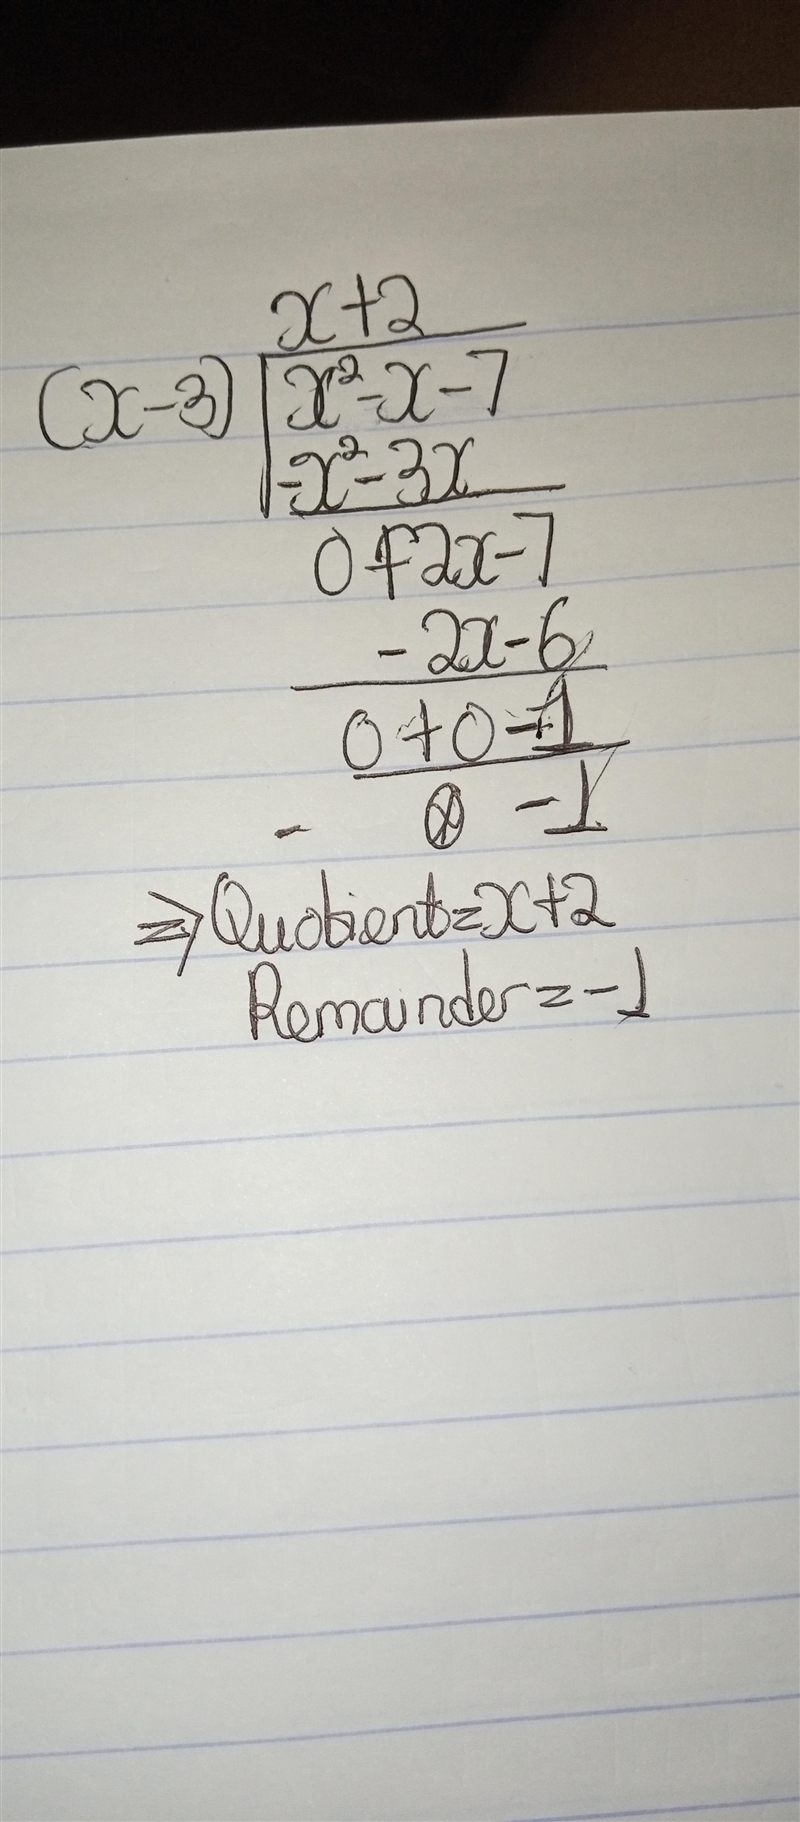 x+2
(x-3) x²-x-7
-x²-3x
0+2x-7
-2x-6
0+0-1
- -1
⇒Quotient=x+2
Remainder=-1